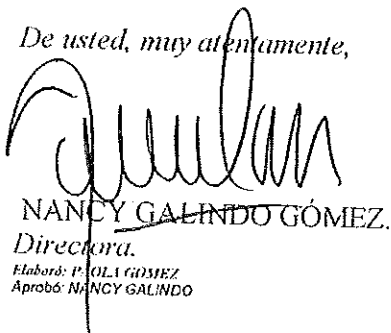 De usted, muy atentamente,
NANCY GALINDO GÓMEZ.
Directora.
Elaboró: PAOLA GOMEZ
Aprobó: NANCY GALINDO